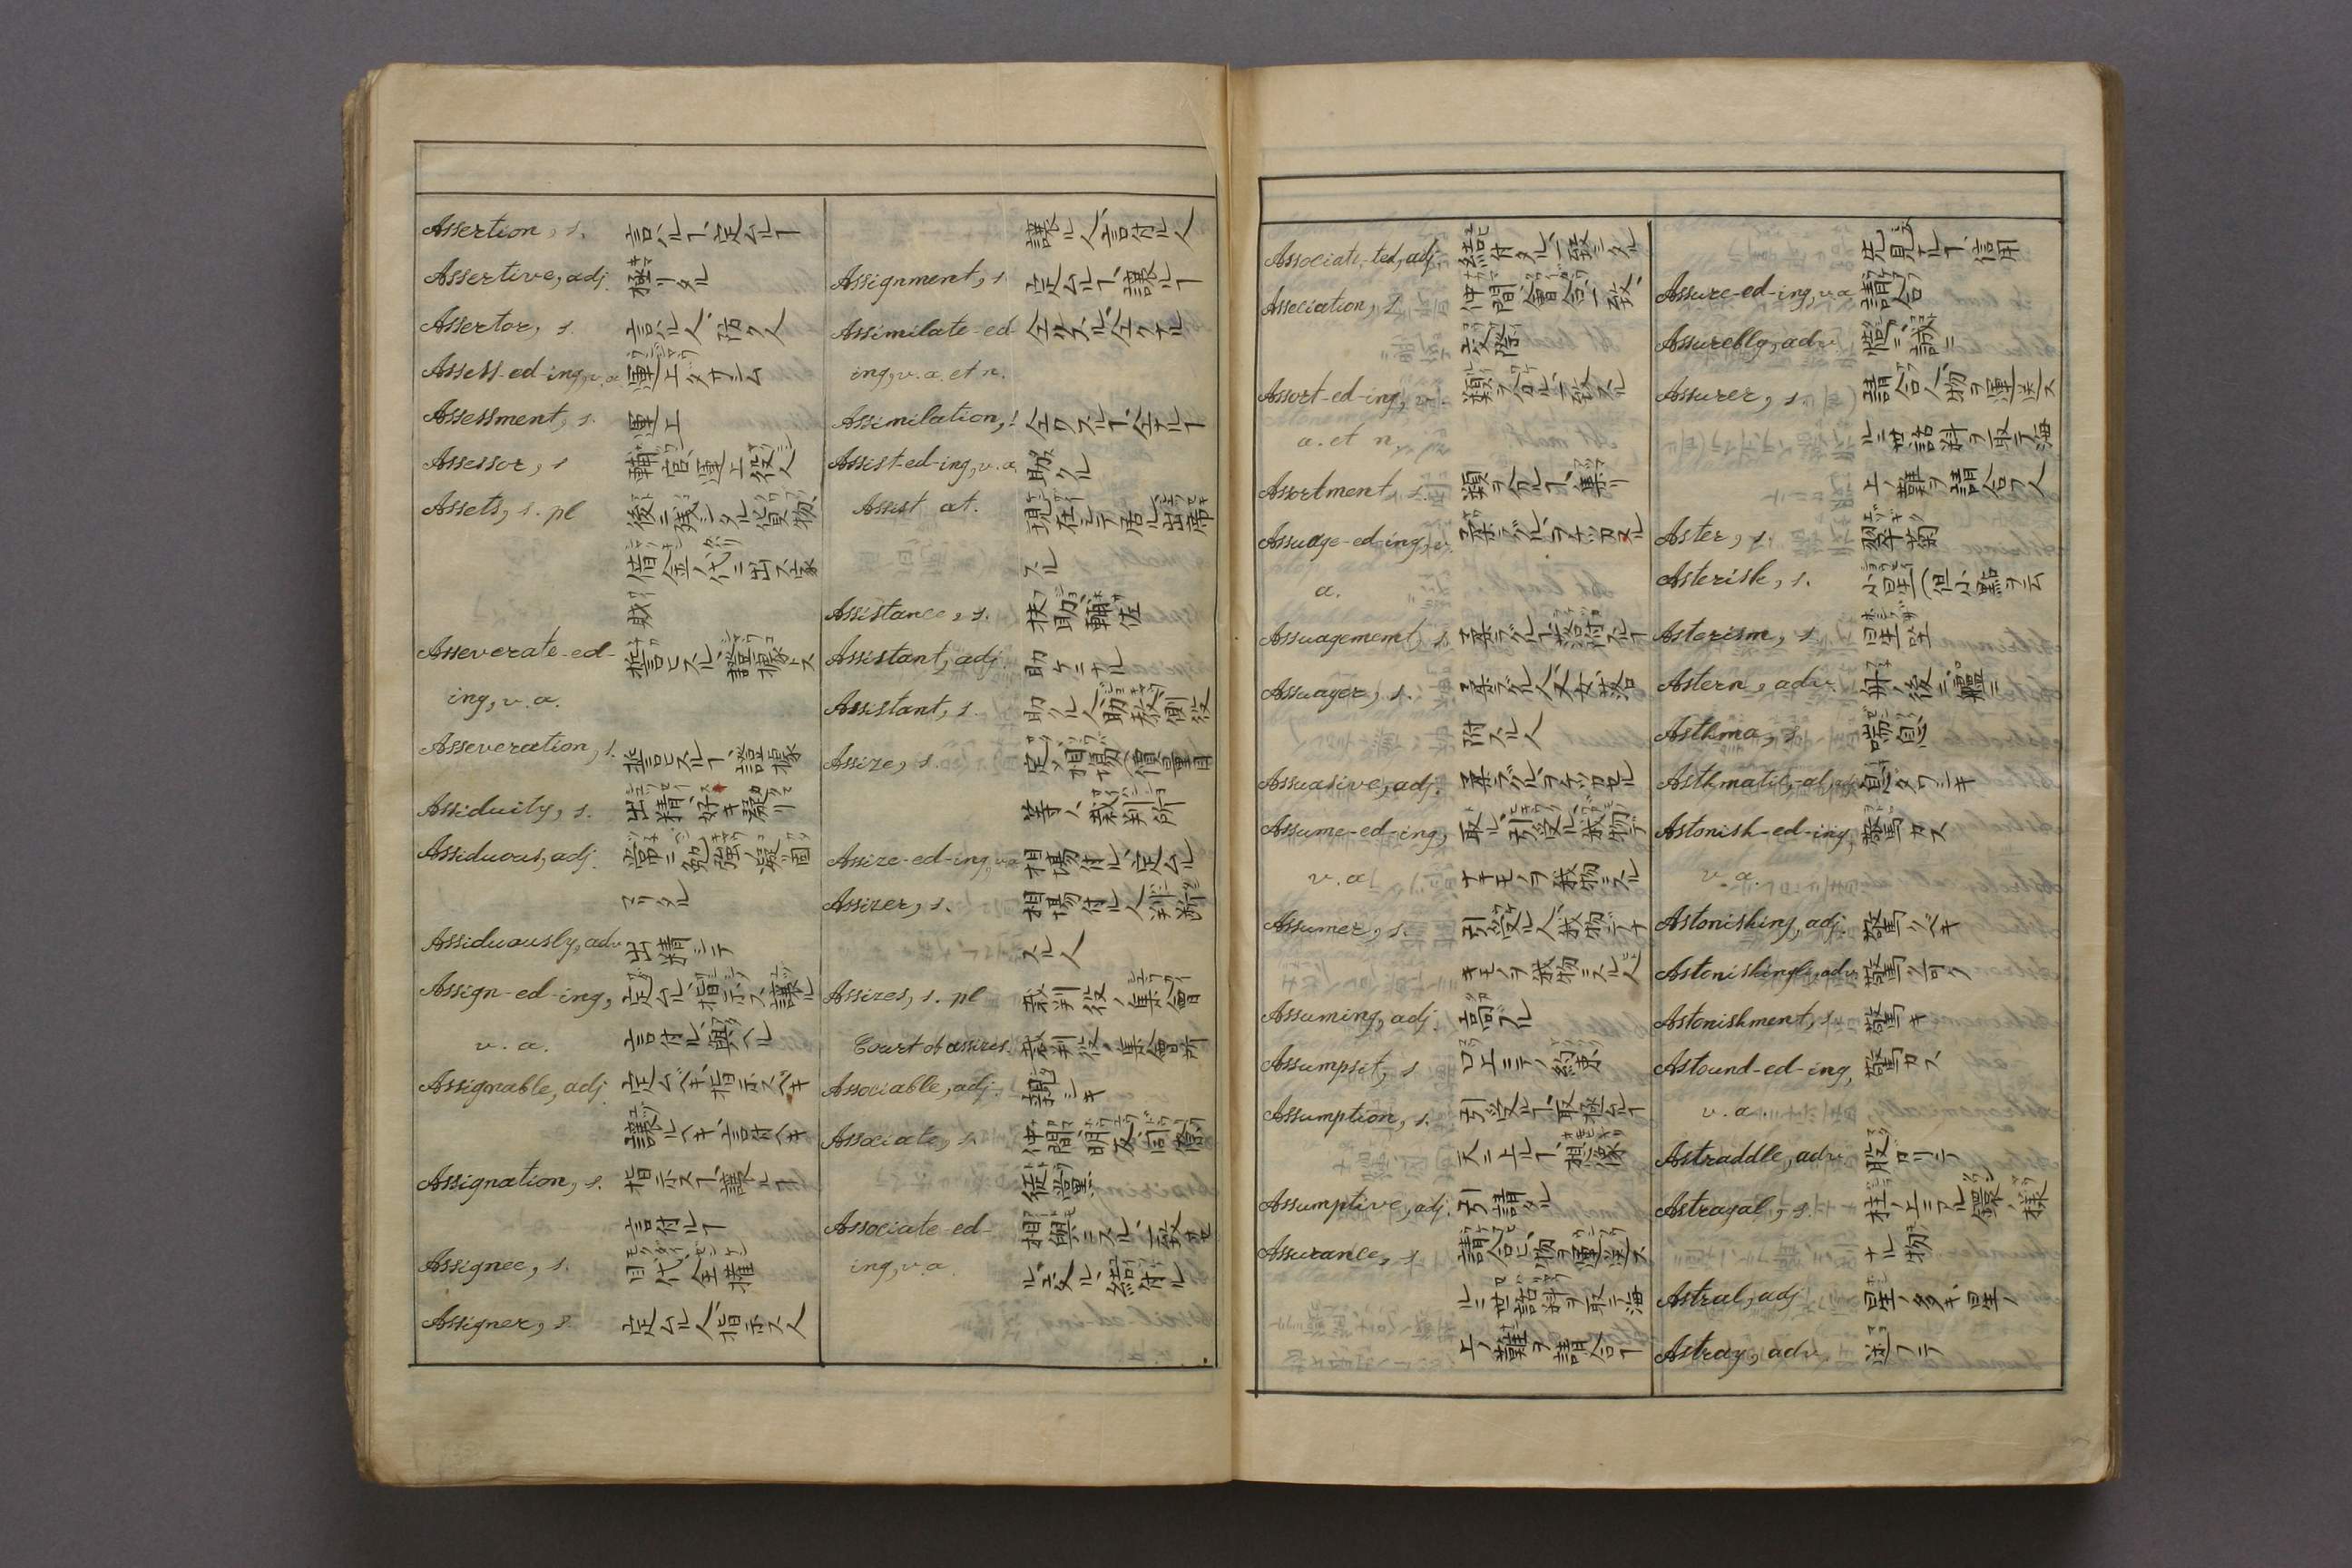 Assertion, s. 言ハルヿ、定ムルヿ
Assertive, adj. 極リタル
Assertor, s. 言ハル人、
Assess-ed-ing, v.a. 運上
Assessment, s. 運上
Assessor, s 輔官、運上役人
Assets, s. pl 後ニ残シタル貨物、
借金ノ代ニ出ス家
財
Asseverate-ed- 誓ヒスル、證據トス
ing, v.a.
Asseveration, s. 誓ヒスルヿ、證據
Assiduity, s. 出精、好キ凝リ
Assiduous, adj. 常ニ勉強ノ、凝リ固
マリタル
Assiduously, adv 出精シテ
Assign-ed-ing, 定ムル、指示ス、譲ル
v. a. 言付ル、與ヘル
Assignable, adj. 定ムベキ、指示スベキ
譲ルベキ、言付ベキ
Assignation, s. 指示スヿ、譲ルヿ
言付ルヿ
Assignee, s. 目代、全權
Assigner, s. 定ムル人、指示ス人
譲ル人、言付ル人
Assignment, s. 定ムルヿ、譲ルヿ
Assimilate-ed-
ing, v.a. et n.
Assimilation, s
Assist-ed-ing, v.a. 助クル
Assist at. 現在シテ居ル、出席
スル
Assistance, s. 扶助、輔佐
Assistant, adj. 助ケニナル
Assistant, s. 助クル人、助教、側役
Assize, s. 定メ相場(價量目
等ノ、裁判所
Assize-ed-ing, v.a 相場付ル、定ムル
Assizer, s. 相場付ル人、判断
スル人
Assizes, s. pl 裁判役ノ集會
Court of assizes. 裁判役ノ集會所
Associable, adj. 親シキ
Associate, s. 仲間、朋友、同僚
徒黨
Associate-ed- 相與ニスル、一致セ
ing, v.a. ル、交ル、結付ル
Associate-ted, adj. 結付タル、一致シタル
Association, s. 仲間、會合、一致、
交際
Assort-ed-ing, v. 類ヲ分ル、一致スル
a. et n.
Assortment, s. 類ヲ分ルヿ、集リ
Assuage-ed-ing, v. 柔ラグル、ヲチツカスル
a.
Assuagement, s. 柔ラグルヿ、落付スルヿ
Assuager, s. 柔ラグル人又ハ落
附スル人
Assuasive, adj. 柔ラグル、ヲチツカセル
Assume-ed-ing, 取ル、引受ル、我物デ
v.a. ナキモノヲ我物ニスル
Assumer, s. 引受ル人、我物デナ
キモノヲ我物ニスル人
Assuming, adj. 高ブル
Assumpsit, s. 口上ニテノ約束
Assumption, s. 引受ルヿ、取極ルヿ
天ニ上ルヿ、想像
Assumptive, adj. 引請タル
Assurance, s. 請合ヒ、物ヲ運送ス
ルニ世話料ヲ取テ海
上ノ難ヲ請合ヿ
信用
Assure-ed-ing, v.a 請合
Assuredly, adv. 慥ニ、誠ニ
Assurer, s. 請合人、物ヲ運送ス
ルニ世話料ヲ取テ海
上ノ難ヲ請合フ人
Aster, s. 翠菊
Asterisk, s. 小星(但小點ヲ云
Asterism, s. 星座
Astern, adv. 舟ノ後ニ、艫ニ
Asthma, s. 喘息
Asthmatic-al, adj. 息ダワシキ
Astonish-ed-ing, 驚カス
v. a.
Astonishing, adj. 驚クベキ
Astonishingly, adv. 驚ク可ク
Astonishment, s. 驚キ
Astound-ed-ing, 驚カス
v. a.
Astraddle, adv. 股ガリテ
Astragal, s. 柱ノ上ニアル鐶ノ様
ナル物
Astral, adj 星ノ多キ、星ノ
Astray, adv. 迷フテ